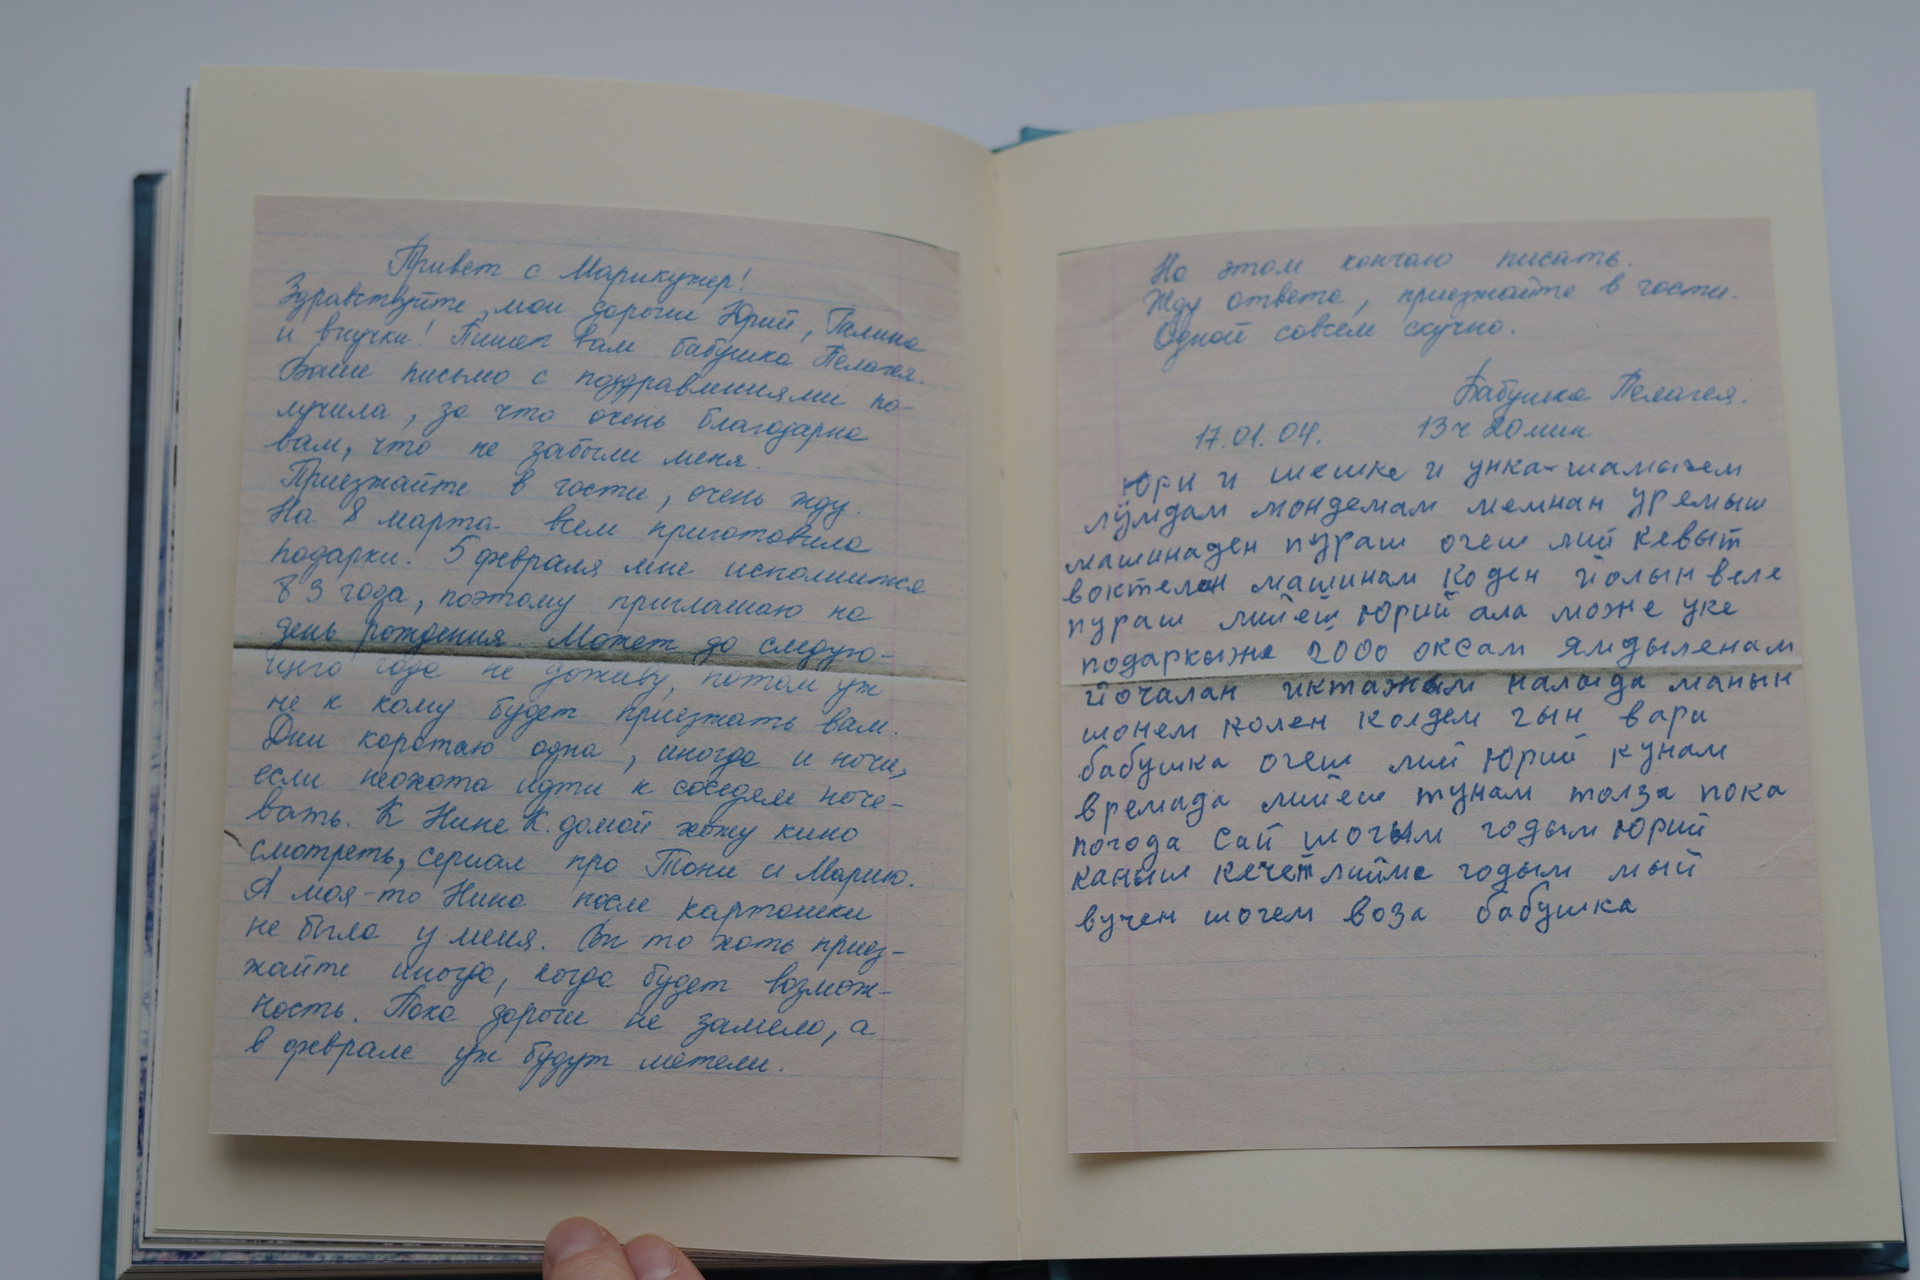 Привет с Марикужер!
Здравствуйте, мои дорогие Юрий, Галина
и внучки! Пишет вам бабушка Пелагея.
Ваше письмо с поздравлениями по-
лучила, за что очень благодарна
вам, что не забыли меня.
Приезжайте в гости, очень жду.
На 8 марта всем приготовила
подарки. 5 февраля мне исполнится
83 года, поэтому приглашаю на
день рождения. Может до следую-
щего года не доживу, потом уж
не к кому будет приезжать вам.
Дни коротаю одна, иногда и ночи,
если неохота идти к соседям ноче-
вать. К Нине К. домой хожу кино
смотреть, сериал про Тони и Марию.
А моя-то Нина после картошки
не была у меня. Вы то хоть приез-
жайте иногда, когда будет возмож-
ность. Пока дороги не замело, а
в феврале уж будут метели.
На этом кончаю писать.
Жду ответа, приезжайте в гости.
Одной совсем скучно.
Бабушка Пелагея.
17.01.04. 13ч 20мин
Юри и шешке и унка-шамычем
лӱмдам мондемам мемнан уремыш
машинаден пураш огеш лий кевыт
воктелан машинам коден йолын веле
пураш лийеш Юрий ала може уке
подаркыже 2000 оксам ямдыленам
йочалан иктажым налыда манын
шонем колен колдем гын вара
бабушка огеш лий Юрий кунам
времада лийеш тунам толза пока
погода сай шогым годым Юрий
каныш кечет лийме годым мый
вучен шогем воза бабушка